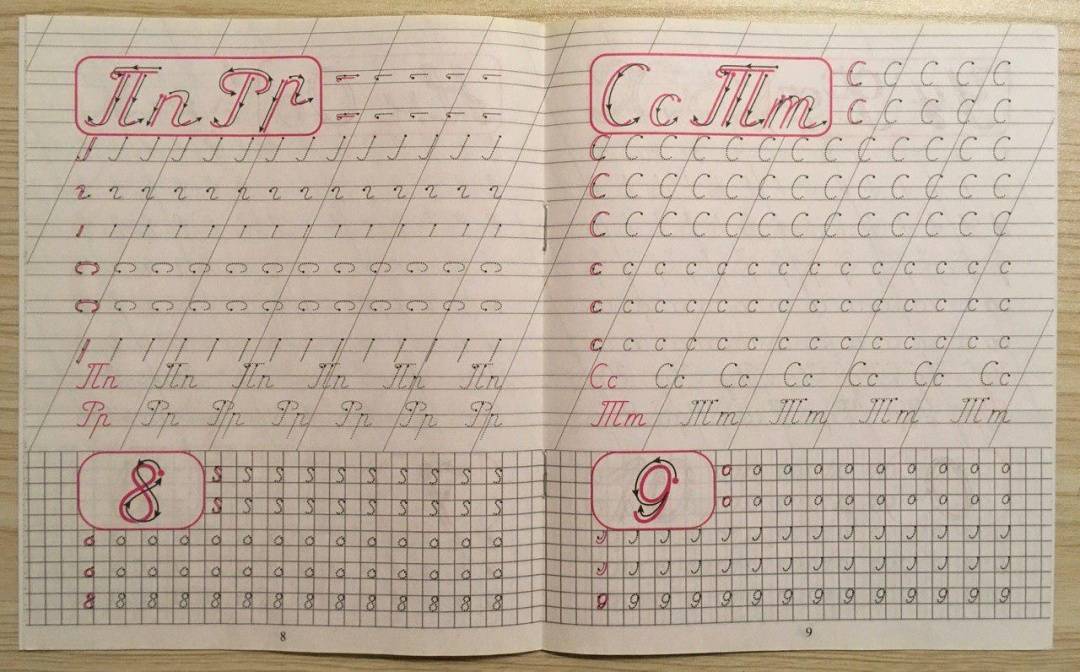 Пп Рр
Пп Пп Пп Пп Пп Пп
Рр Рр Рр Рр Рр Рр Рр
8
8 8 8 8 8 8 8 8 8 8 8 8 8 8
8
Сс Тт
С С С С С
С С С С С
С С С С С С С С С С С С С
С С С С С С С С С С С С С
С С С С С С С С С С С С С
с с с с с с с с с с с с с с
с с с с с с с с с с с с с с
с с с с с с с с с с с с с с
Сс Сс Сс Сс Сс Сс Сс
Тт Тт Тт Тт Тт
9
9 9 9 9 9 9 9 9 9 9 9 9 9 9
9